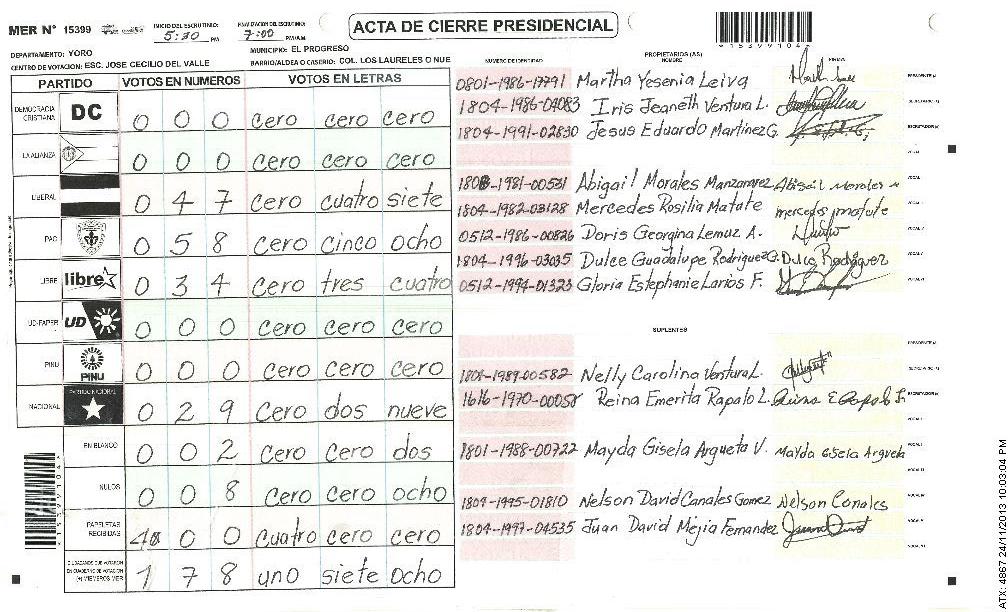 MER N° 15399
INICIO DEL ESCRUTINIO: 5:30 PM
FINALIZACION DEL ESCRUTINIO: 7:00 PM/AM
ACTA DE CIERRE PRESIDENCIAL
*15399104*
DEPARTAMENTO: YORO
MUNICIPIO: EL PROGRESO
CENTRO DE VOTACION: ESC. JOSE CECILIO DEL VALLE
BARRIO/ALDEA O CASERIO: COL. LOS LAURELES O NUE
PARTIDO VOTOS EN NUMEROS VOTOS EN LETRAS
DEMOCRACIA CRISTIANA DC 0 0 0 cero cero cero
LA ALIANZA 0 0 0 cero cero cero
LIBERAL 0 4 7 cero cuatro siete
PAC 0 5 8 cero cinco ocho
LIBRE libre 0 3 4 cero tres cuatro
UD-FAPER UD 0 0 0 cero cero cero
PINU PINU 0 0 0 cero cero cero
NACIONAL PARTIDO NACIONAL 0 2 9 cero dos nueve
EN BLANCO 0 0 2 cero cero dos
NULOS 0 0 8 cero cero ocho
PAPELETAS RECIBIDAS 4 0 0 cuatro cero cero
CIUDADANOS QUE VOTARON EN CUADERNO DE VOTACION (+) MIEMBROS MER 1 7 8 uno siete ocho
NUMERO DE IDENTIDAD PROPIETARIOS (AS) NOMBRE FIRMA
0801-1986-17791 Martha Yesenia Leiva
1804-1986-04083 Iris Jeaneth Ventura L.
1804-1991-02830 Jesus Eduardo Martinez G.
1808-1981-00531 Abigail Morales Manzanarez Abigail Morales
1804-1982-03128 Mercedes Rosilia Matute mercedes matute
0512-1986-00826 Doris Georgina Lemuz A.
1804-1996-03035 Dulce Guadalupe Rodriguez G. Dulce Rodriguez
0512-1994-01323 Gloria Estephanie Larios F.
SUPLENTES
1804-1989-00582 Nelly Carolina Ventura L.
1616-1970-00058 Reina Emerita Rapalo L. Reina E Rapalo
1801-1988-00722 Mayda Gisela Argueta V. Mayda Gisela Argueta
1804-1995-01810 Nelson David Canales Gomez Nelson Canales
1804-1997-04535 Juan David Mejia Fernandez
*15399104*
ATX: 4867 24/11/2013 10:03:04 PM